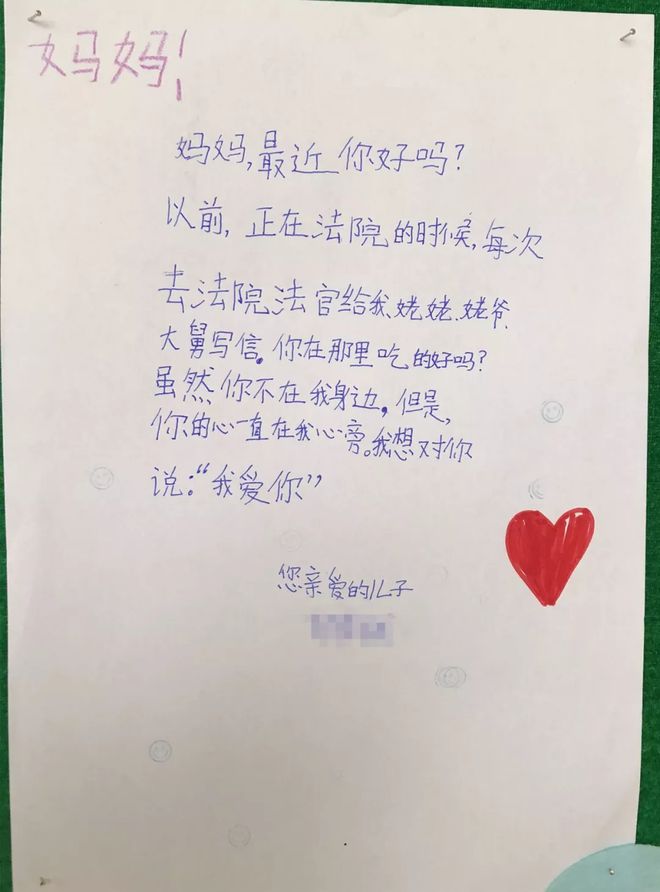 妈妈!
妈妈,最近你好吗?
以前,正在法院的时候,每次
去法院法官给我、姥姥、姥爷、
大舅写信。你在那里吃的好吗?
虽然你不在我身边。但是,
你的心一直在我心旁。我想对你
说:“我爱你”
您亲爱的儿子